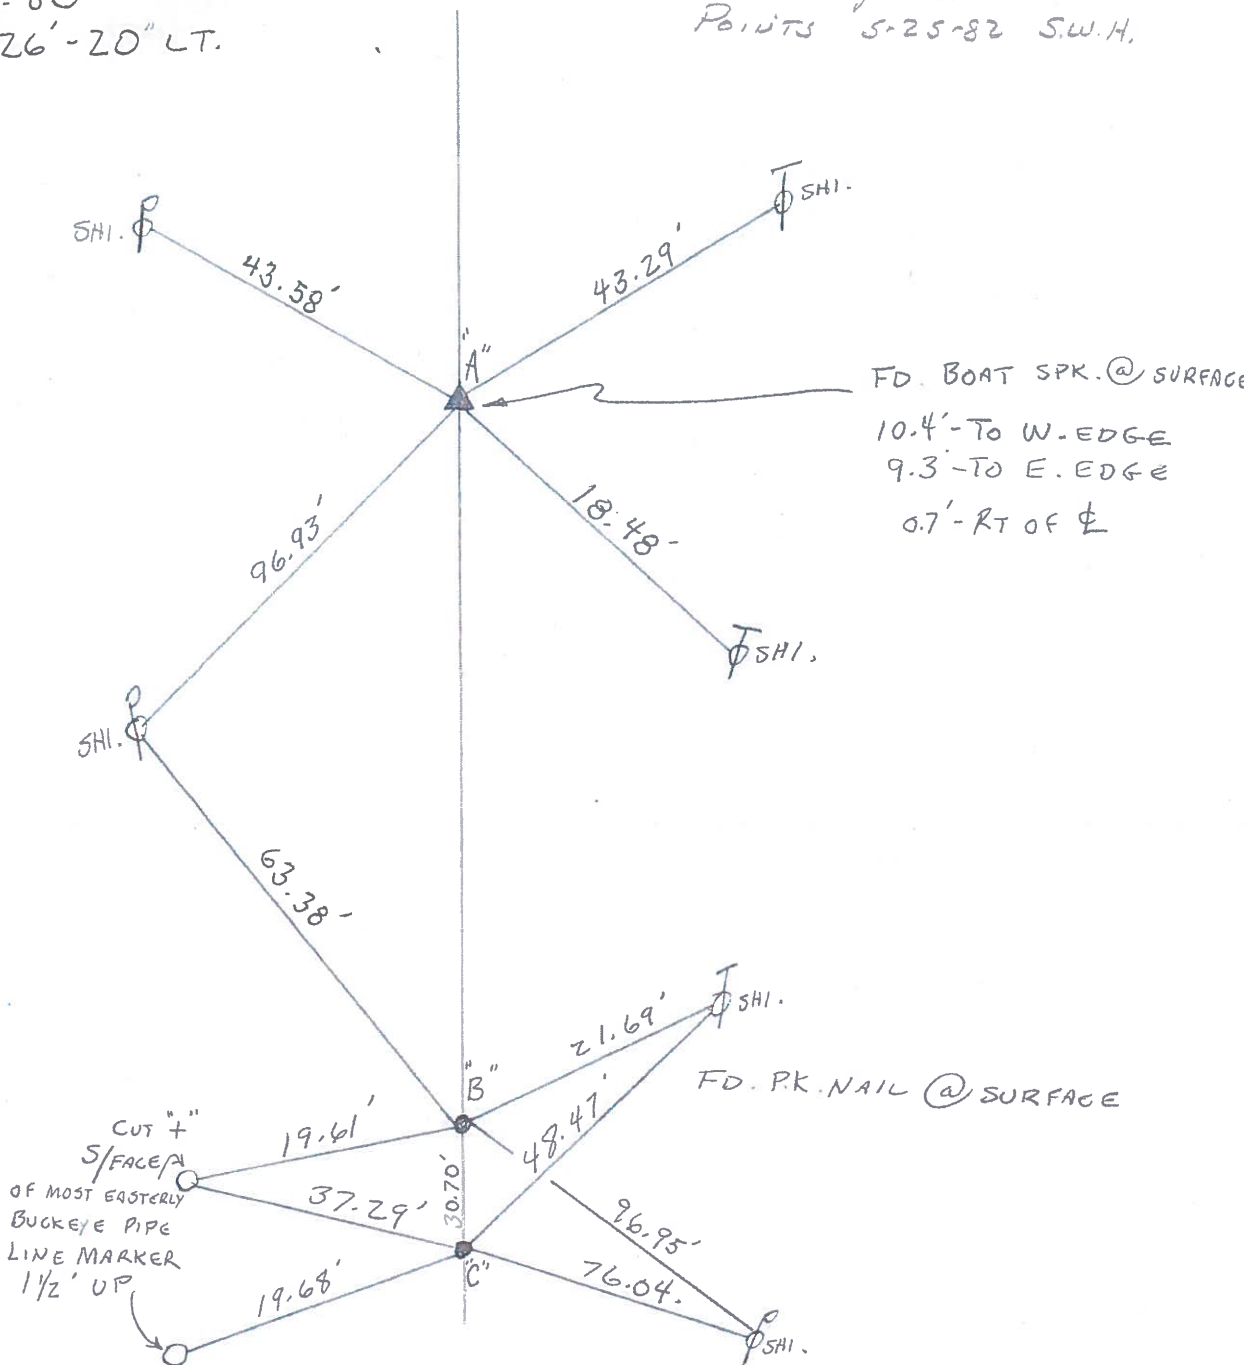 26'-20" LT.
POINTS 5-25-82 S.W.H.
SHI.
SHI.
43.58'
43.29'
"A"
FD. BOAT SPK. @ SURFACE
10.4'-TO W. EDGE
9.3'-TO E. EDGE
0.7'-RT OF ℄
96.93'
18.48'
SHI.
SHI.
63.38'
SHI.
21.69'
"B"
FD. P.K. NAIL @ SURFACE
48.47'
CUT "+"
S/FACE
OF MOST EASTERLY
BUCKEYE PIPE
LINE MARKER
1 1/2' UP
19.61'
37.29'
30.70'
96.95'
"C"
76.04.
19.68'
SHI.